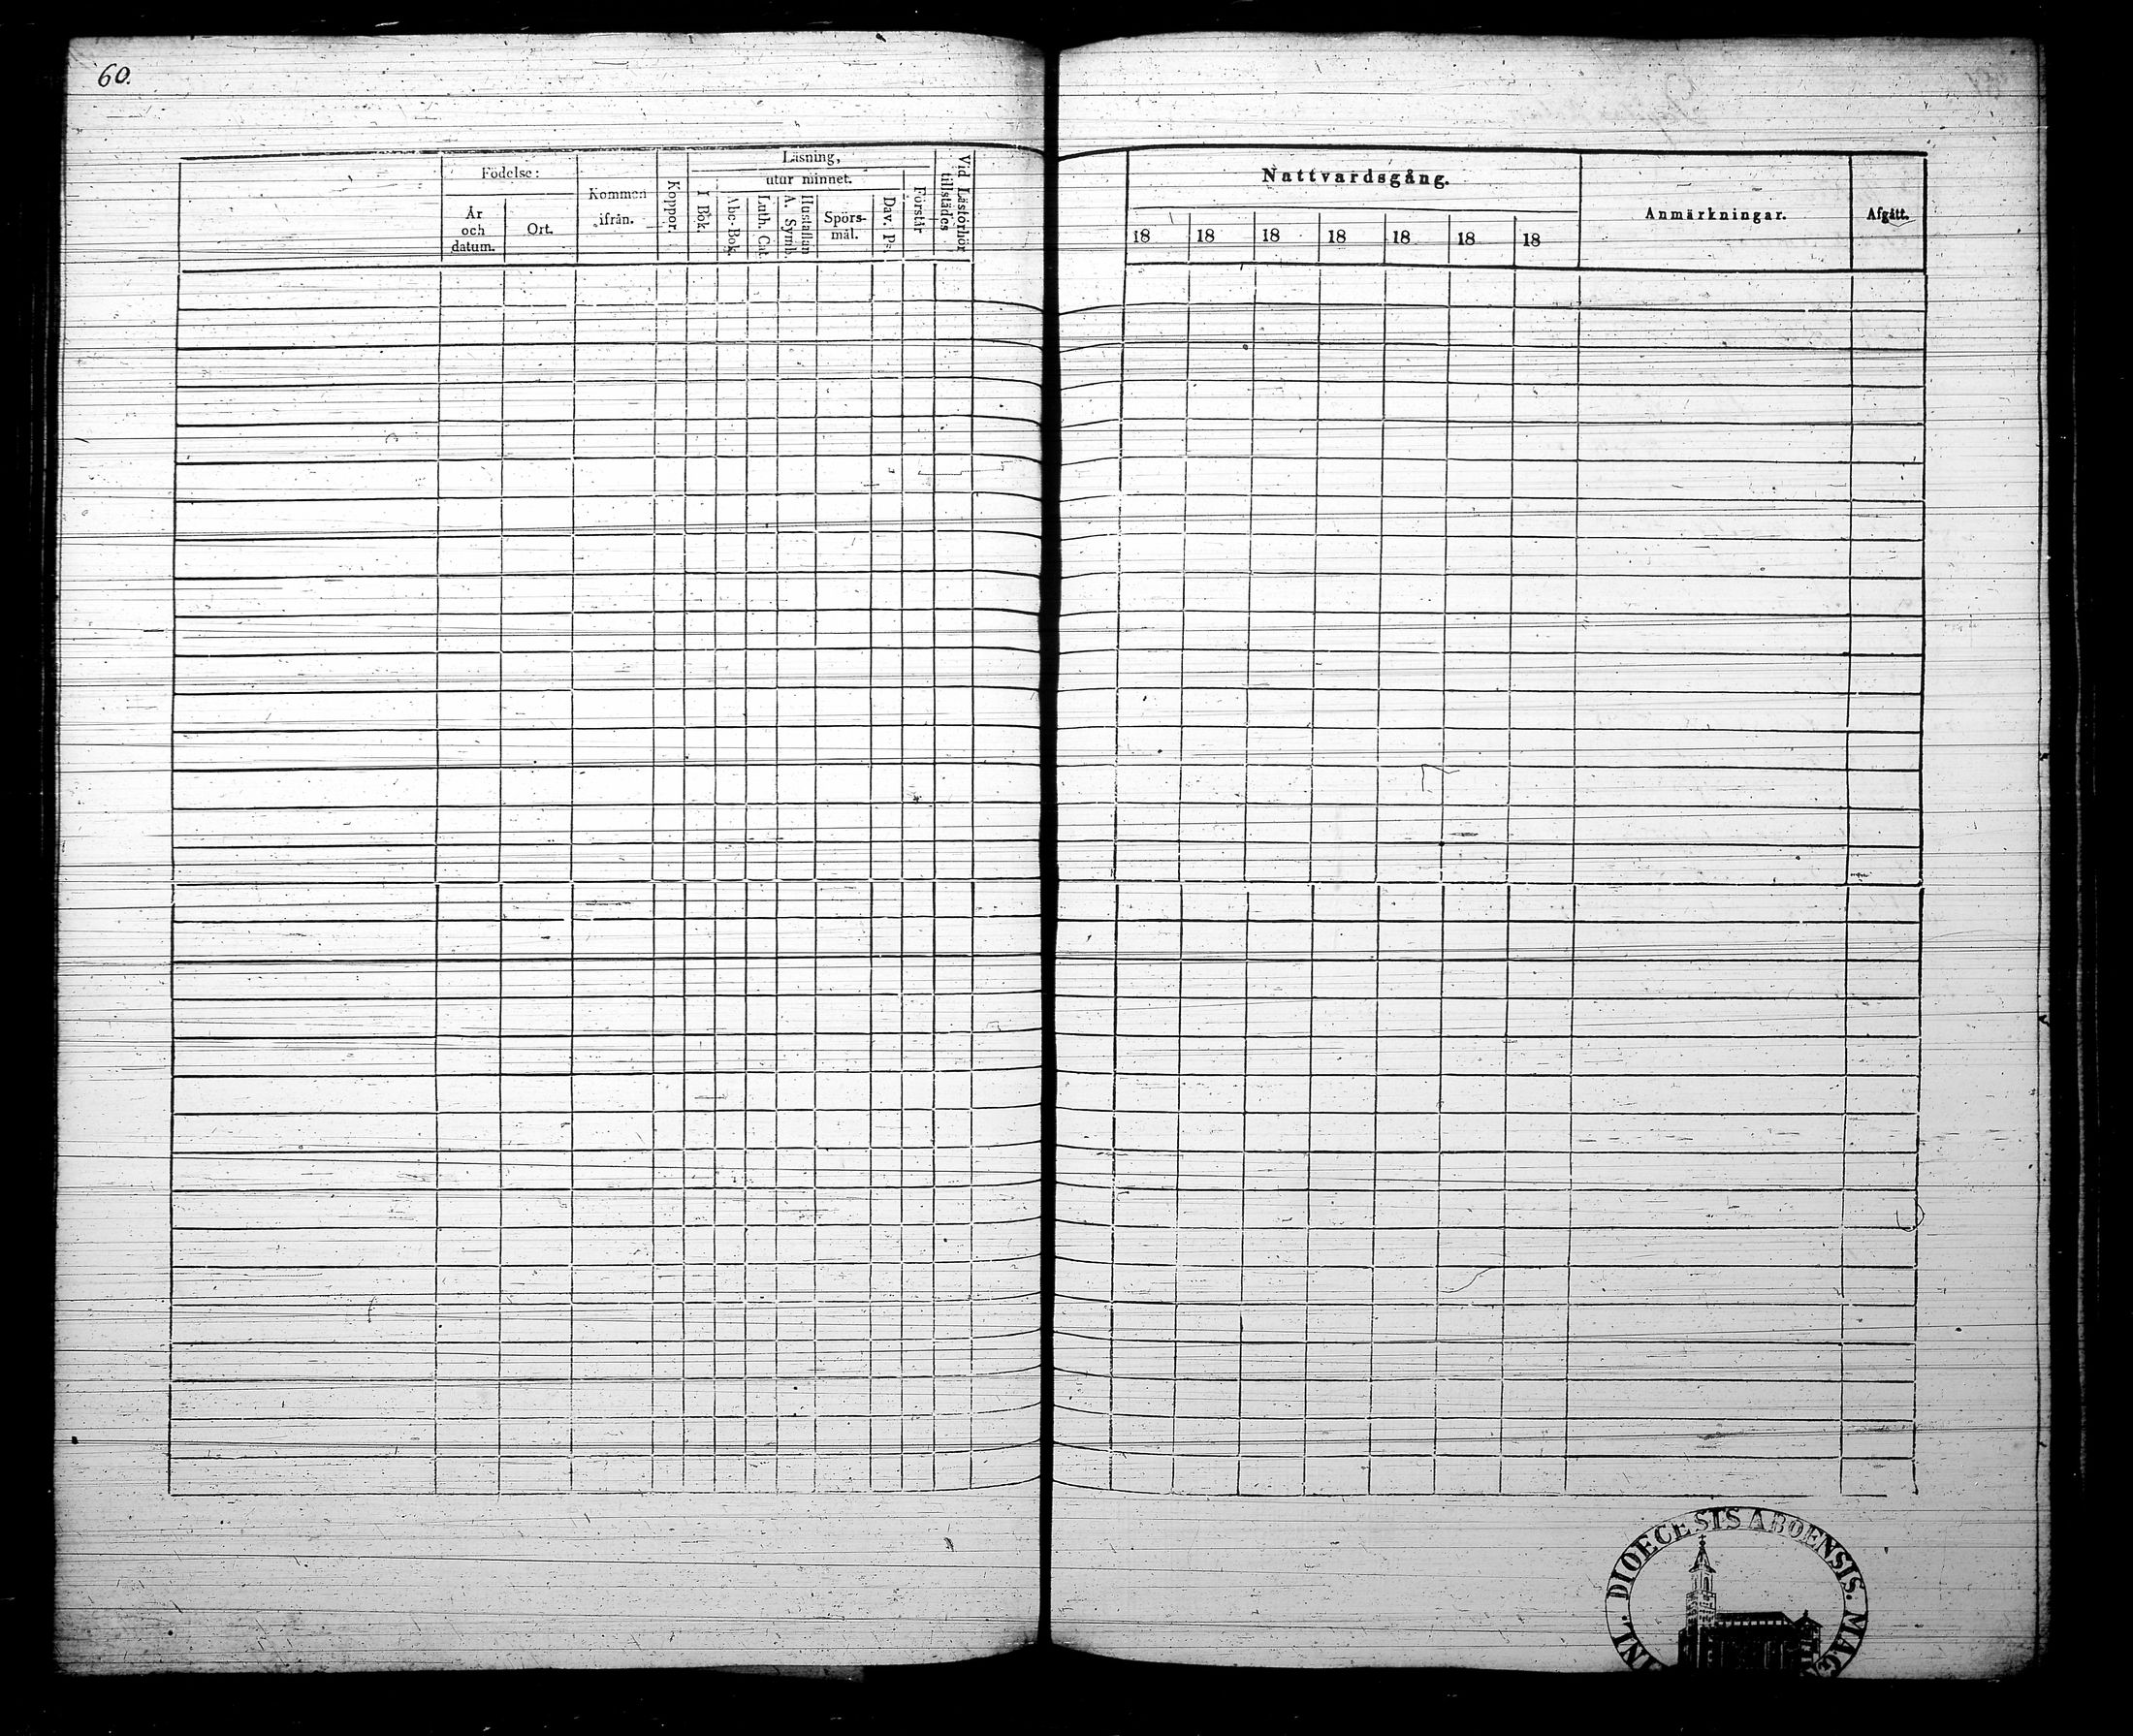 60.
Födelse:
År
och
datum.
Ort.
Kommen
ifrån.
Koppor.
Läsning,
utur minnet.
I Bok.
Abc-Bok.
Luth. Cat.
A. Symb.
Hustaflan
Spörs-
mål.
Dav. Ps.
Förstår
Vid Läsförhör
tillstädes
Nattvardsgång.
18 18 18 18 18 18 18
Anmärkningar.
Afgått.
DIOECESIS ABOENSIS. MAG